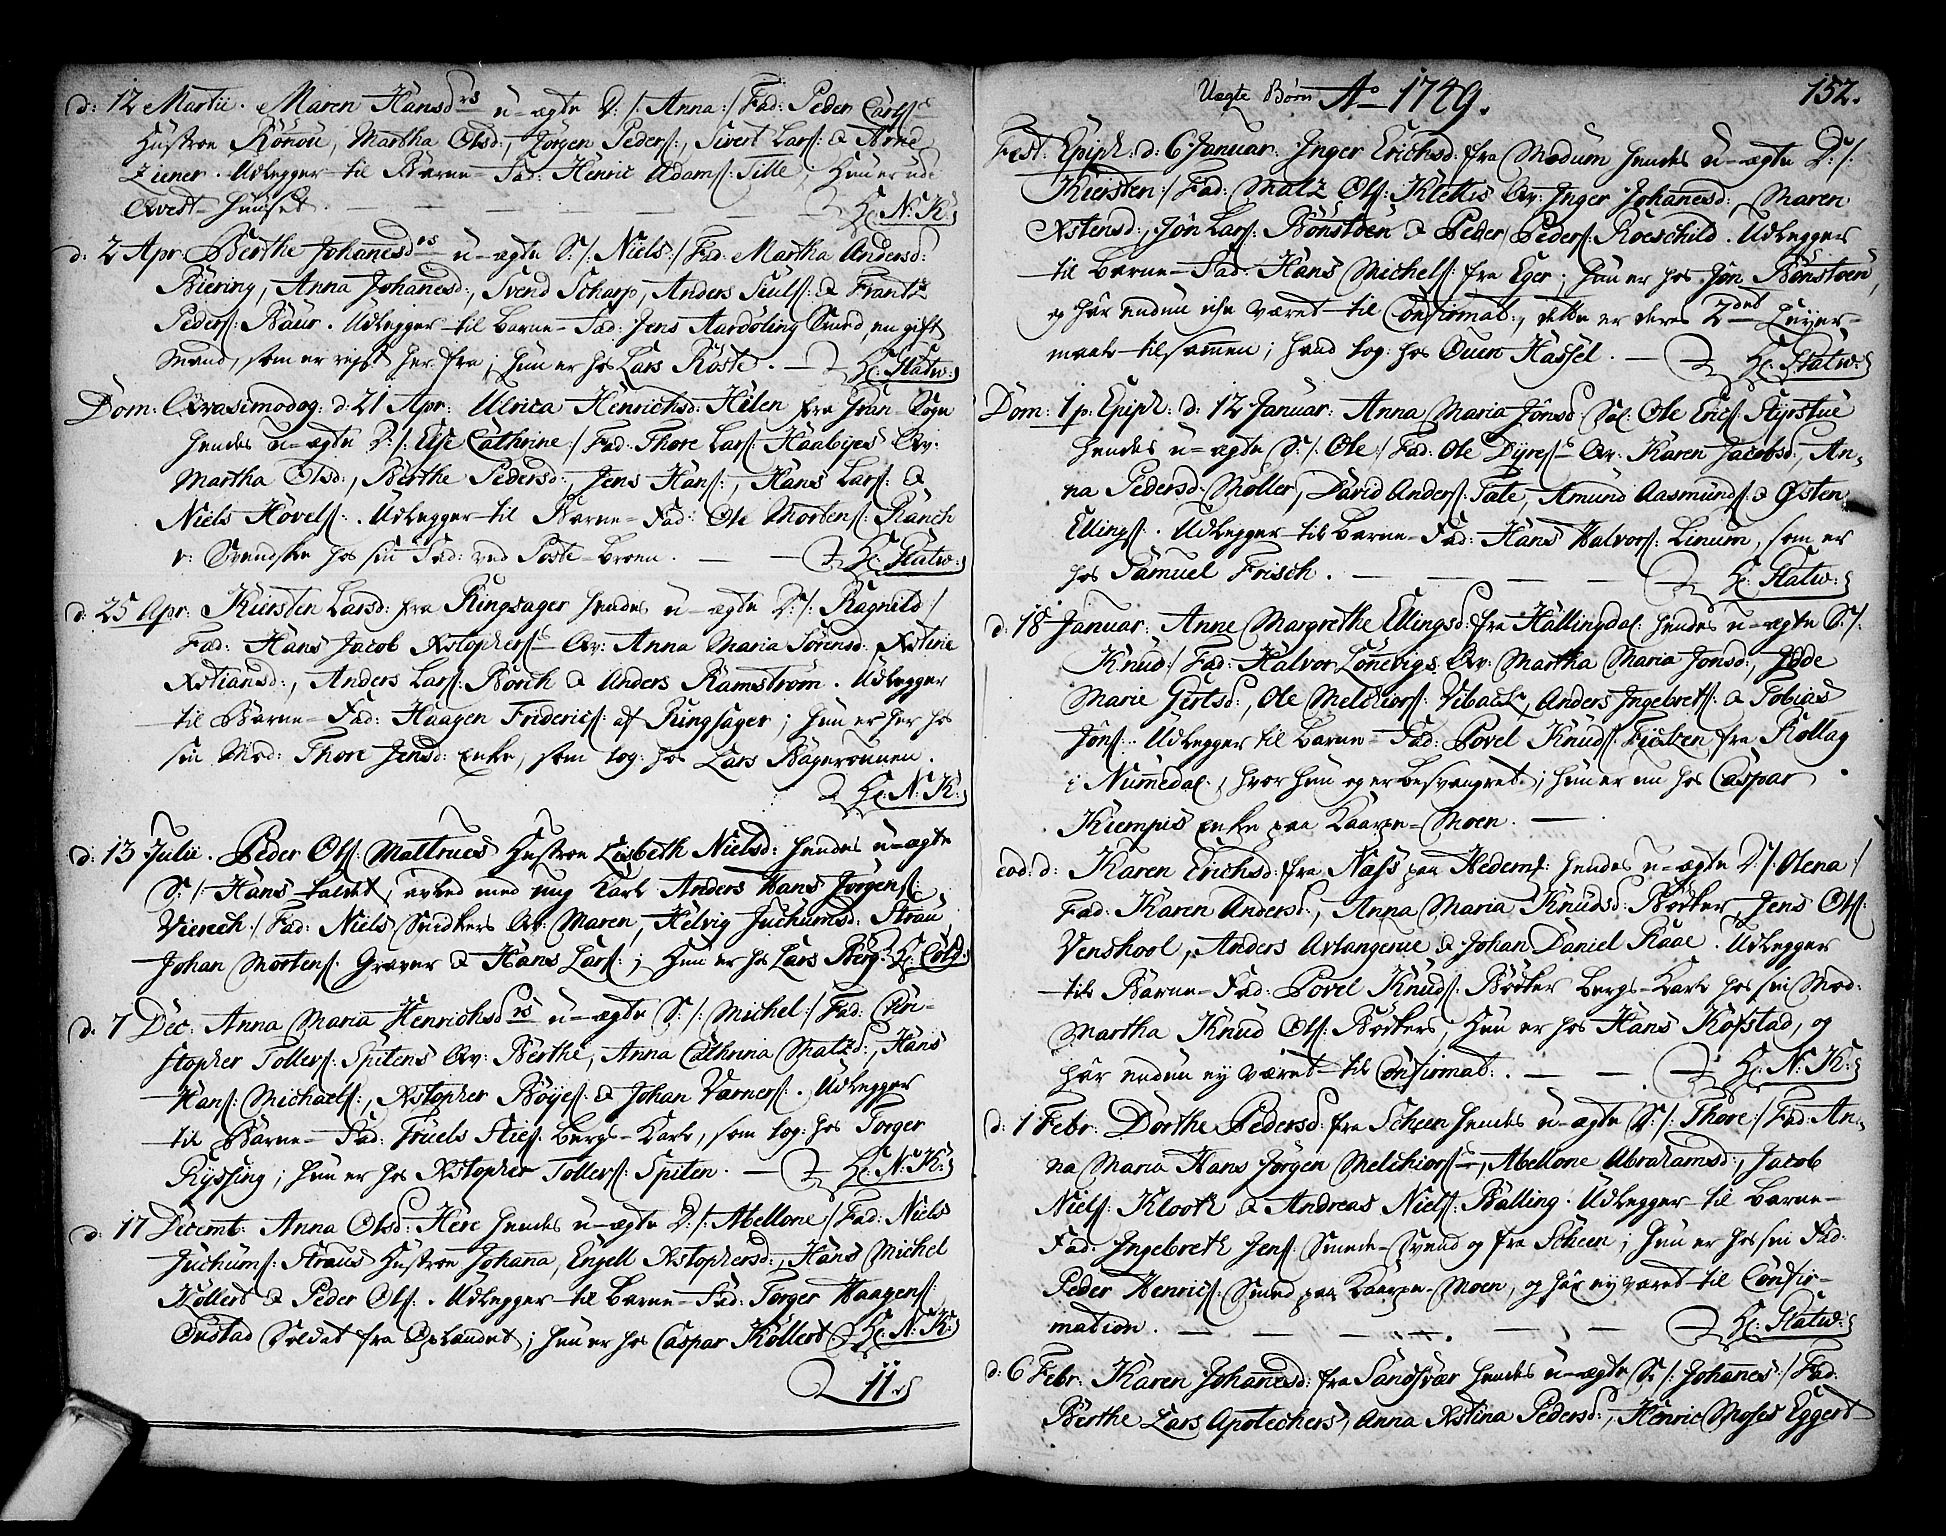 d: 12 Martii. Maren Hansdrs u-ægte D:/: Anna:/ Fad: Peder Carls:
Hustroe Rönou, Martha Olsd:, Jörgen Peders:, Sivert Lars: & Arne
Ziener. Udlegger til Barne-Fad: Henric Adams: Tille; Hun er ude
Qvest-Huuset. H: N: K:
d: 2 Apr: Berthe Johanesdrs u-ægte S:/: Niels:/ Fad: Martha Andersd:
Biering, Anna Johanesd:, Svend Scharp, Anders Siuls: & Frantz
Peders: Baur. Udlegger til Barne-Fad: Jens Aardöling Smed, en gift
Mand, som er rejst her fra; hun er hos Lars Röste. H: Statw:
Dom: Qvasimodog: d: 21 Apr: Ulrica Henrichsd: Helen fra Gran-Sogn
hendes u-ægte D:/: Else Cathrine:/ Fad: Thore Lars: Haabyes Qv:
Martha Olsd:, Berthe Pedersd:, Jens Hans:, Hans Lars: &
Niels Hövels:. Udlegger til Barne-Fad: Ole Mortens: Ranch
v: Svendske hos sin Fad: ved Poste-Broen. H: Statw:
d: 25 Apr: Kiersten Larsd: fra Ringsager hendes u-ægte D:/: Ragnild:/
Fad: Hans Jacob Xstophers: Qv: Anna Maria Sörensd: Xstine
Xstiansd:, Anders Lars: Borch & Anders Ramström. Udlegger
til Barne-Fad: Haagen Frideric: af Ringsager; hun er her hos
sin Mod: Thore Jensd: Enke, som log: hos Lars Bageronnen.
H: N: K:
d: 13 Julii. Peder Ols: Mattrues Hustroe Lisbeth Nielsd: hendes u-ægte
S:/: Hans kaldet, avled med ung Karl Anders Hans Jörgens:
Vierech:/ Fad: Niels Snidkers Qv: Maren, Helvig Juchumsd: Strau
Johan Mortens: Graver & Hans Lars:; Hun er hos Lars Berg. H: Cold:
d: 7 Dec: Anna Maria Henrichsdrs u-ægte S:/: Michel:/ Fad: Chri-
stopher Tollers: Spitens Qv: Berthe, Anna Cathrina Matzd:, Hans
Hans: Michaels:, Xstopher Böyes: & Johan Varners:. Udlegger
til Barne-Fad: Truels Sties: Bergs-Karl, som log: hos Torger
Ryssing; hun er hos Xstopher Tollers: Spiten. H: N: K:
d: 17 Decemb: Anna Olsd: Here hendes u-ægte D:/: Abellone:/ Fad: Niels
Juchums: Straus Hustroe Johana, Engell Xstophersd:, Hans Michel
Köllert & Peder Ols:. Udlegger til Barne-Fad: Torger Haagens:
Onstad Soldat fra Oplandet; hun er hos Caspar Köllert H: N: K:
11
Uægte Börn Ao 1749. 152.
Fest: Epiph: d: 6 Januar: Inger Erichsd: fra Modum hendes u-ægte D:/:
Kiersten:/ Fad: Matz Ols: Klettis Qv: Inger Johanesd: Maren
Xstensd:, Jön Lars: Bönstöen & Peder Peders: Roeschild. Udlegger
til Barne-Fad: Hans Michels: fra Eger; hun er hos Jön Bönstöen,
og har endnu ike været til Confirmat:, dette er deres 2det Leyer-
maal tilsammen; hand log: hos Ouen Hassel. H: Statw:
Dom: 1 p: Epiph: d: 12 Januar: Anna Maria Jönsd: Sal: Ole Erics: Styrstue
hendes u-ægte S:/: Ole:/ Fad: Ole Dyres: Qv: Karen Jacobsd:, An-
na Pedersd: Möller, David Anders: Tate, Amund Aasmunds: & Östen
Ellings:. Udlegger til Barne-Fad: Hans Halvors: Linum, som er
hos Samuel Frisch. H: Statw:
d: 18 Januar: Anne Margrethe Ellingsd: fra Hallingdal: hendes u-ægte S:/:
Knud:/ Fad: Halvor Lönnevigs Qv: Martha Maria Jonsd:, Jöde
Marie Girtsd:, Ole Melchiors: Viback, Anders Ingebrets: & Tobias
Jöns:. Udlegger til Barne-Fad: Povel Knuds: Fielzen fra Rollag
i Numedal, hvor hun og er besvangret; hun er nu hos Caspar
Kiempes Enke paa Kaarne-Moen.
eod: d: Karen Erichsd: fra Nass paa Hedem: hendes u-ægte D:/: Olena:/
Fad: Karen Andersd:, Anna Maria Knudsd: Böcker, Jens Ols:
Venskool, Anders Avlangerue & Johan Daniel Raae. Udlegger
til Barne-Fad: Povel Knuds: Böcker Bergs-Karl hos sin Mod:
Martha Knud Ols: Böckers, Hun er hos Hans Kofstad, og
har endnu ey været til Confirmat:. H: N: K:
d: 1 Febr: Dorthe Pedersd: fra Scheen hendes u-ægte S:/: Thore:/ Fad: An-
na Maria Hans Jörgen Melchiors:, Abellone Abrahamsd:, Jacob
Niels: Klooth & Andreas Niels: Balling. Udlegger til Barne-
Fad: Ingebreth Jens: Smede-Svend og fra Scheen; hun er hos sin Fad:
Peder Henrics: Smed paa Kaarne-Moen, og har ey været til Confir-
mation. H: Statw:
d: 6 Febr: Karen Johanesd: fra Sandsvær hendes u-ægte S:/: Johanes:/ Fad:
Berthe Lars Apotechers, Anna Xstina Pedersd:, Henric Moses Eggert